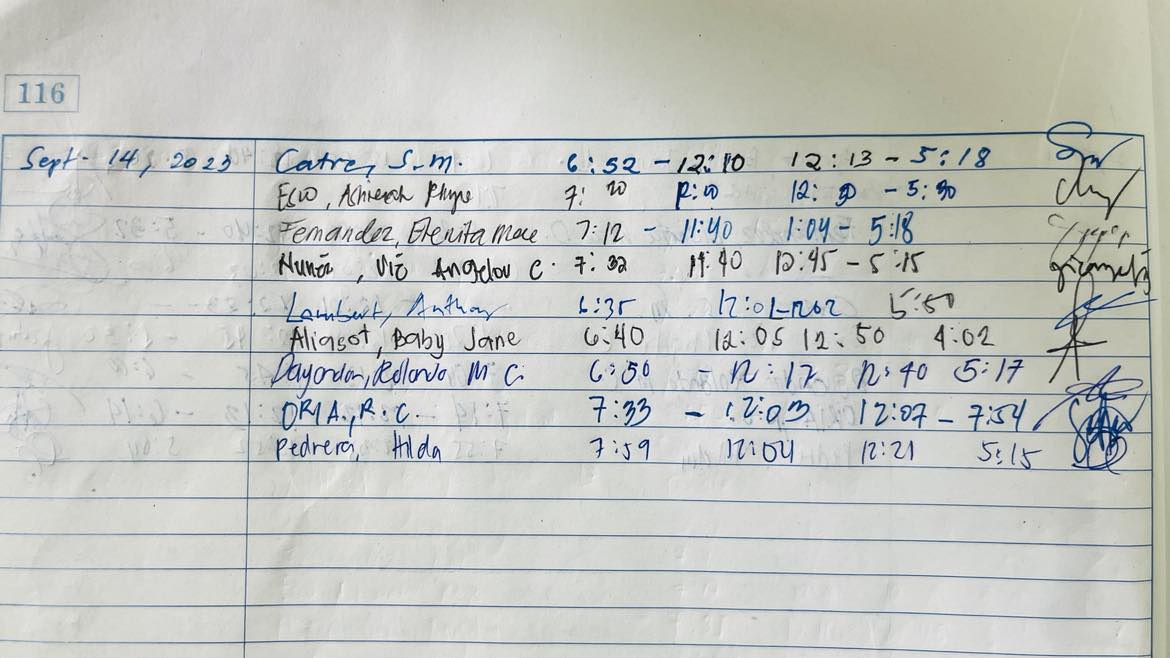 116
Sept. 14, 2023 Catre, S.M. 6:52 - 12:10 12:13 - 5:18
7: 20 12:00 12: 30 - 5:30
Fernandez, Elenita Mae 7:12 - 11:40 1:04 - 5:18
Angelou C. 7:32 11:40 12:45 - 5:15
Lambert, Anthony 6:35 12:01-1202 5:50
Aliasot, Baby Jane 6:40 12:05 12:50 4:02
M C. 6:50 - 12:17 12:40 5:17
ORIA, R.C. 7:33 - 12:03 12:07 - 7:54
Pedrera, Hilda 7:59 12:04 12:21 5:15